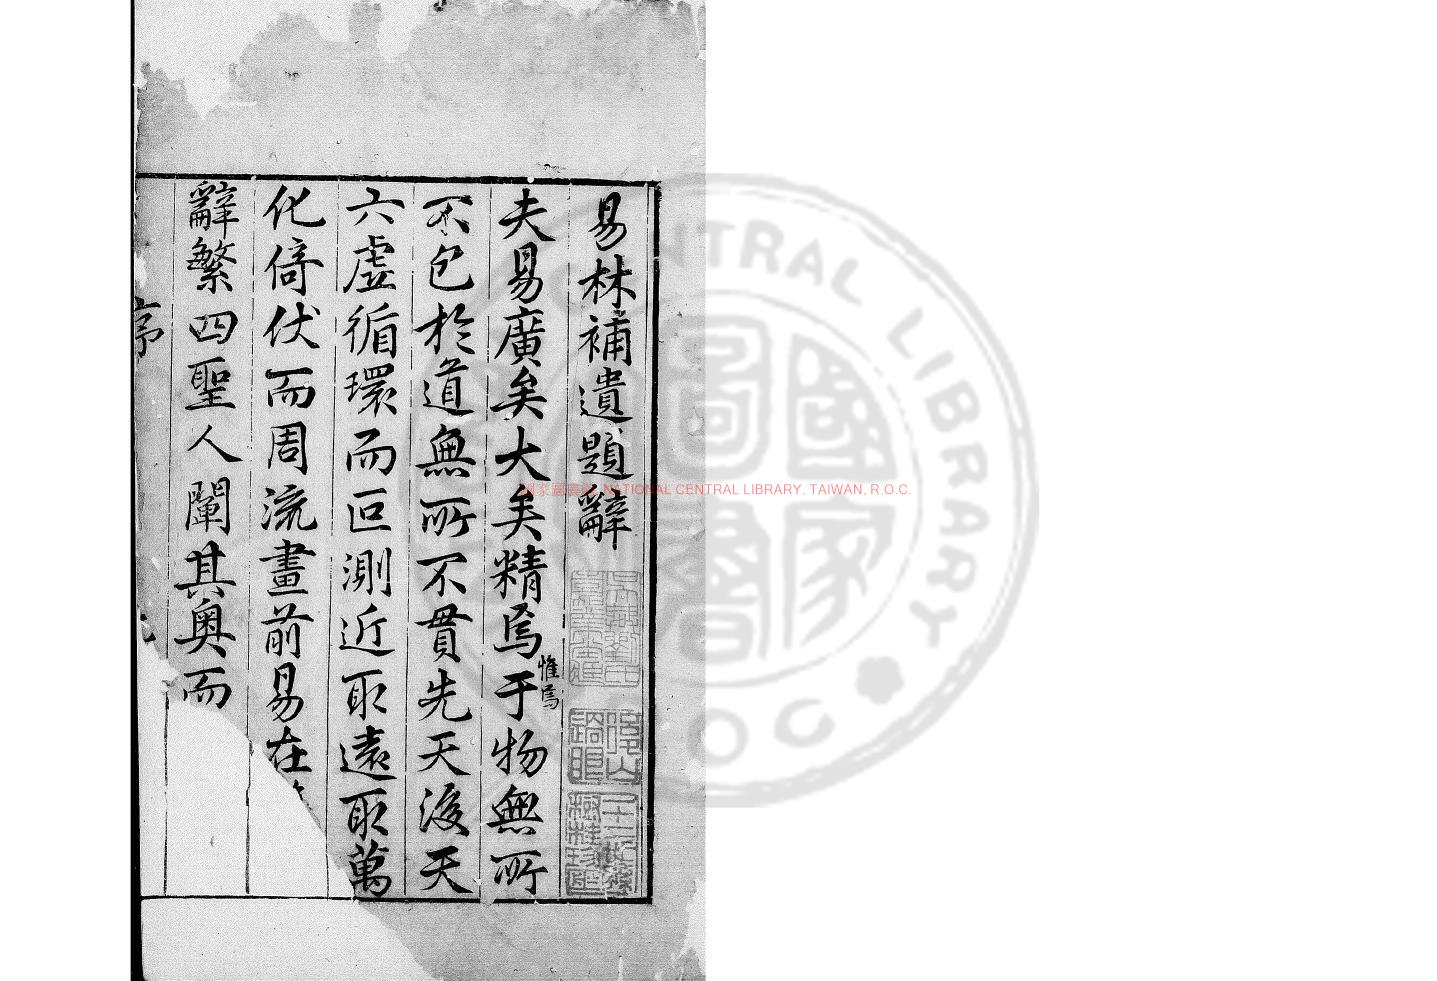 易林補遺題辭
夫易廣矣大矣精焉于物無所
惟焉
不包於道無所不貫先天後天
六虛循環而叵測近取遠取萬
化倚伏而周流畫前易在
辭繁四聖人闡其奧而
序
國家圖書館, NATIONAL CENTRAL LIBRARY, TAIWAN, R.O.C.